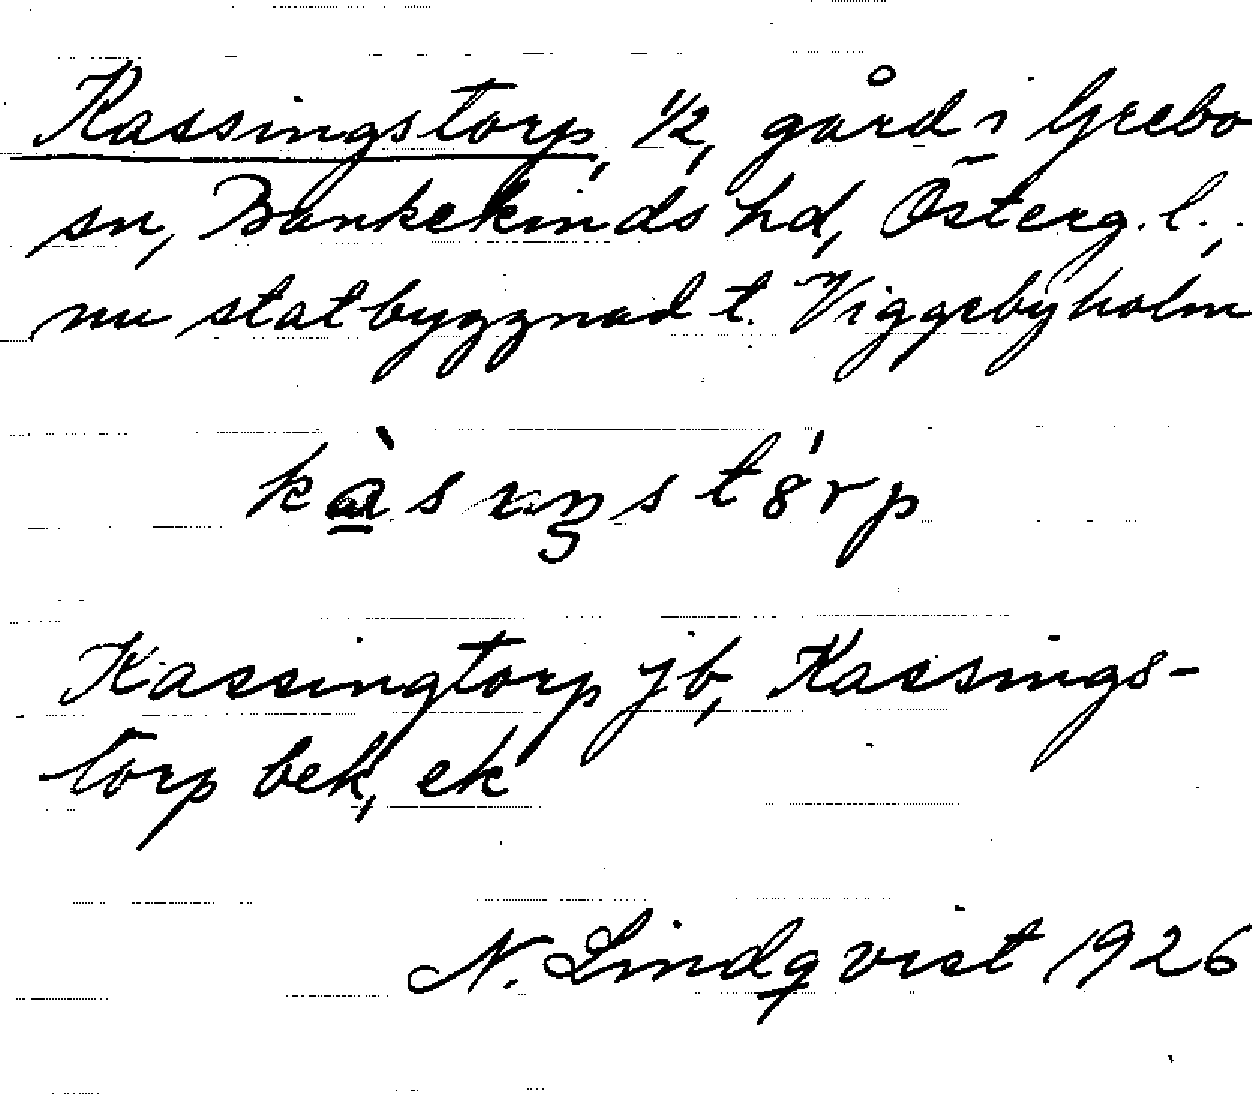 Kassingstorp, 1/2, gård i Grebo
sn, Bankekinds hd, Österg. l.,
nu statbyggnad t. Viggebyholm
kàsıŋstórp
Kassingtorp jb, Kassings-
torp bek, ek
N. Lindqvist 1926